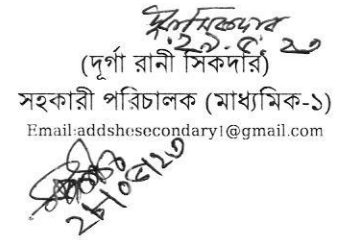 ২৯.৫.২৩
(দূর্গা রানী সিকদার)
সহকারী পরিচালক (মাধ্যমিক-১)
Email:addshesecondary1@gmail.com
২৮/০৫/২৩